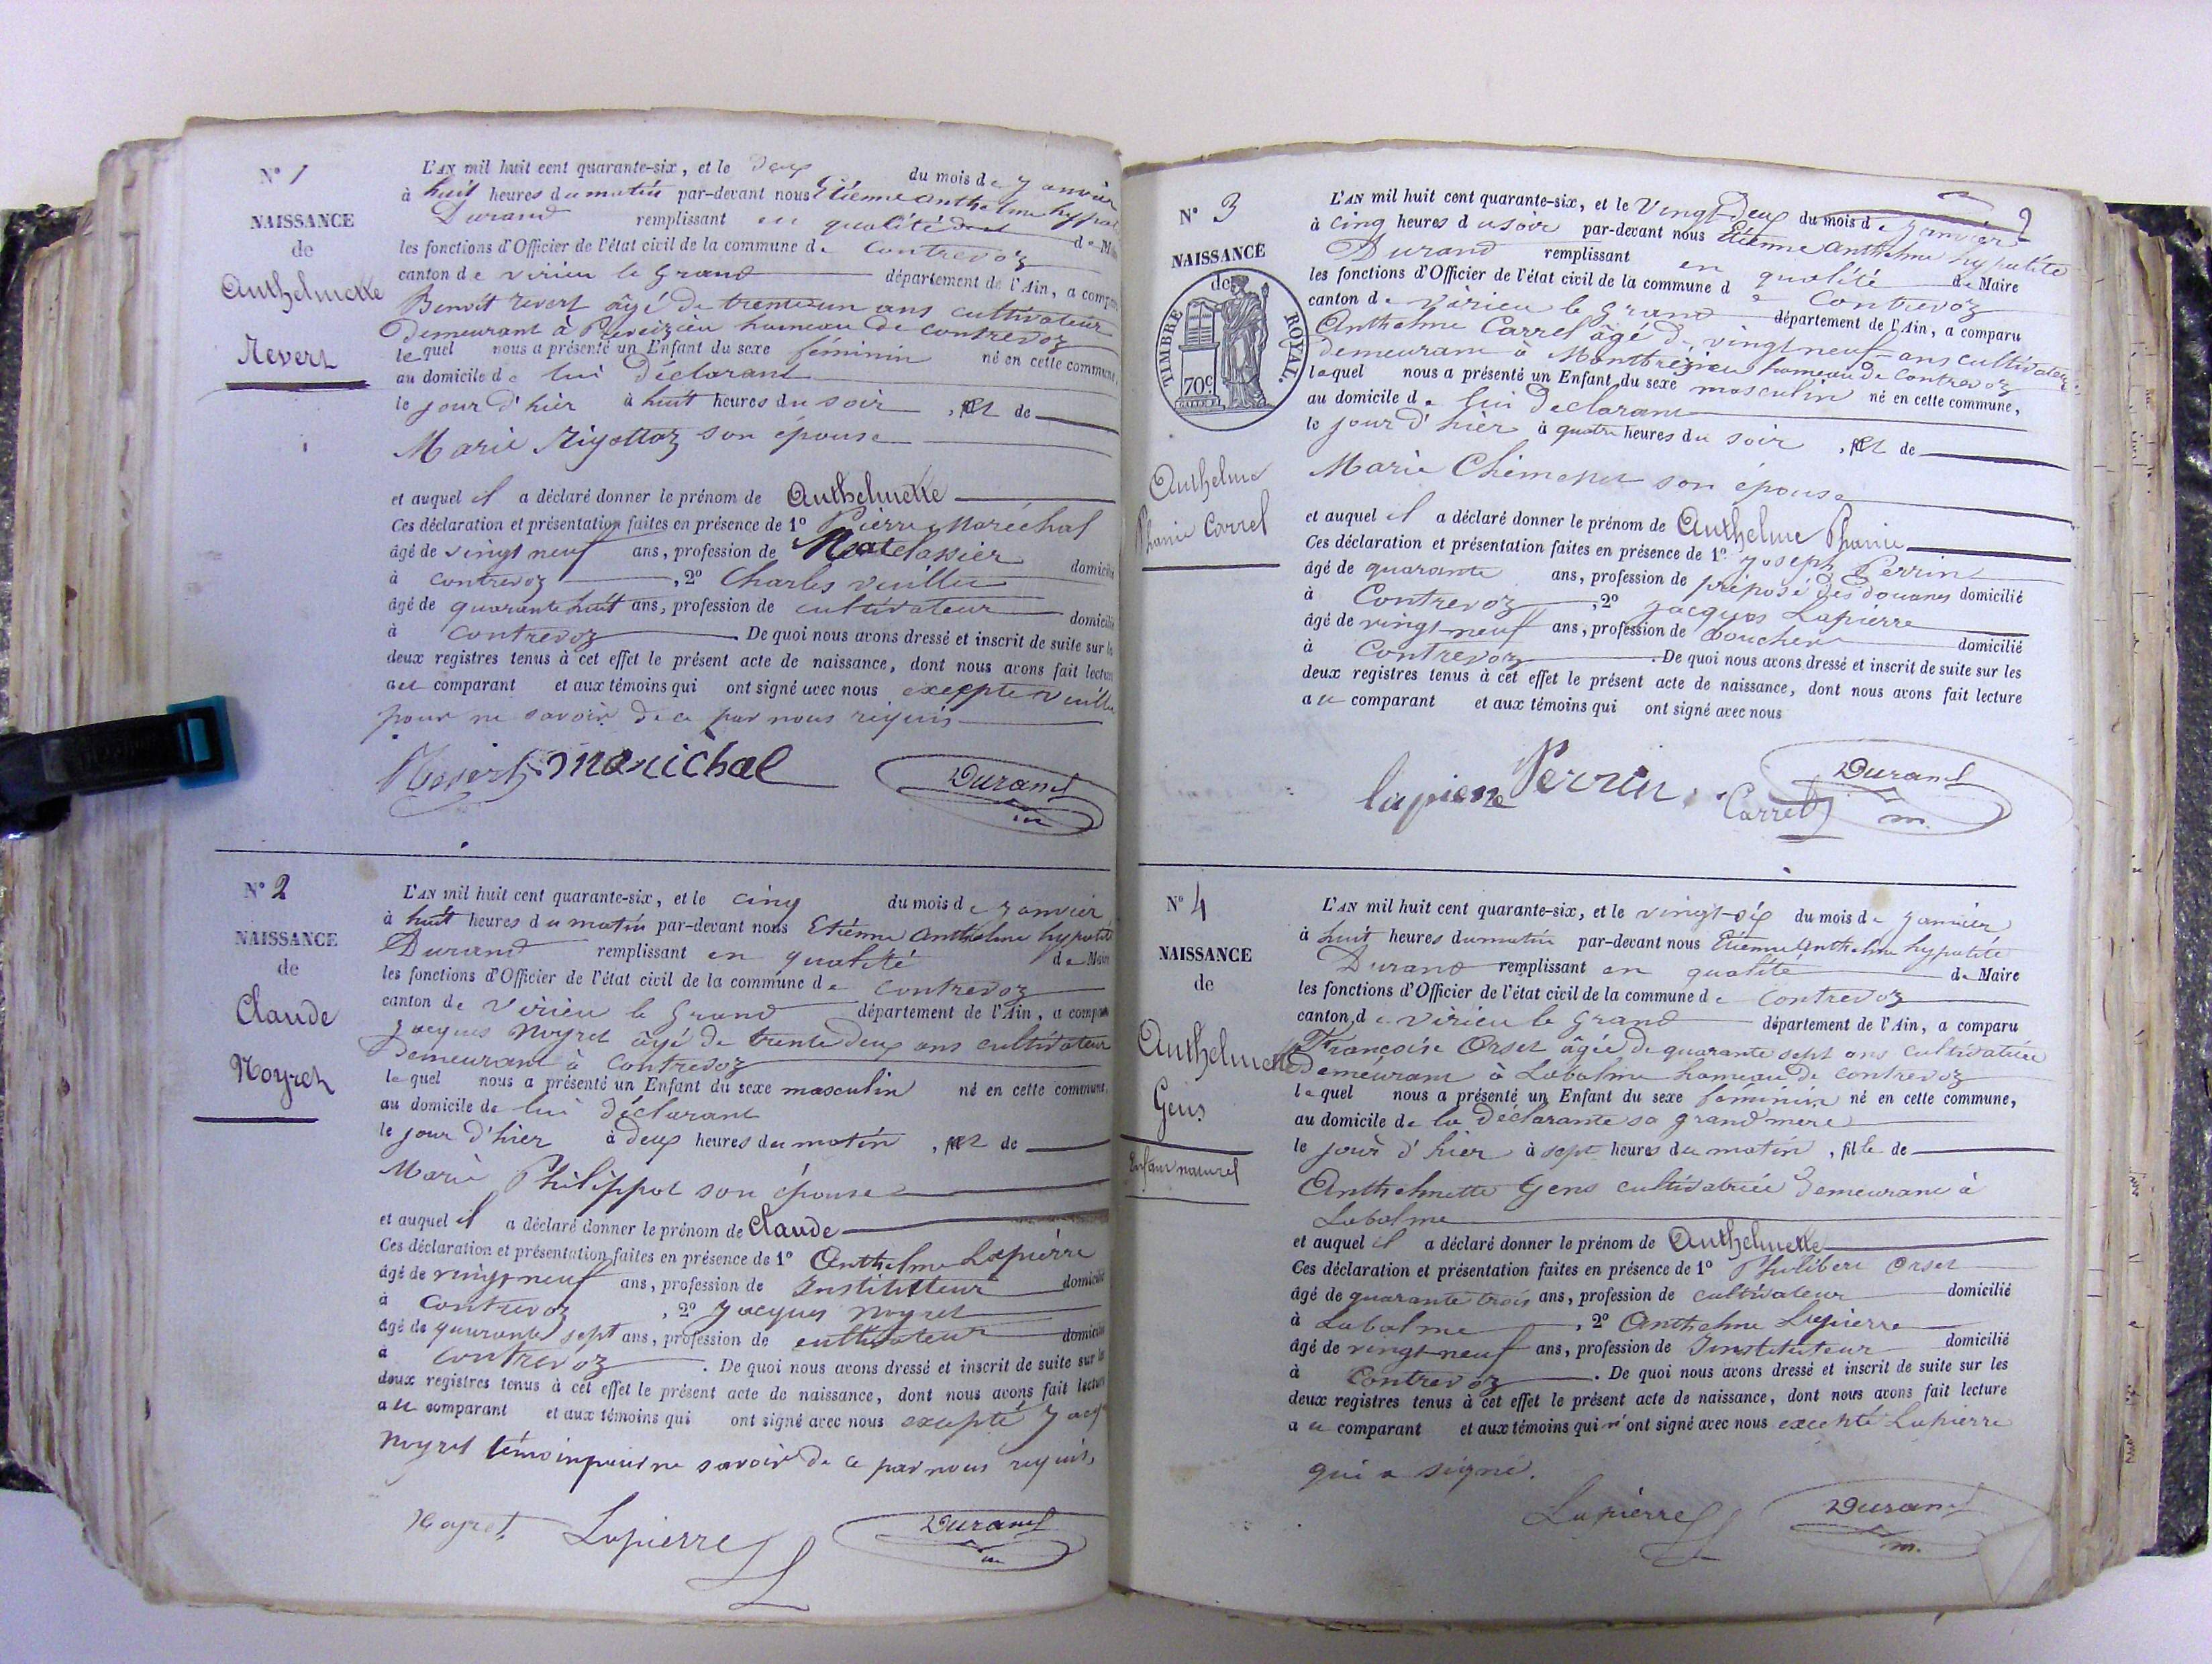 N° 1
NAISSANCE
de
Anthelmette
Revert
L'AN mil huit cent quarante-six, et le deux du mois de janvier
à huit heures du matin par-devant nous Etienne anthelme hypolite
Durand remplissant en qualité de Maire
les fonctions d'Officier de l'état civil de la commune de Contrevoz
canton de virieu le Grand département de l'Ain, a comparu
Benoit revert âgé de trente un ans cultivateur
Demeurant à hameau de contrevoz
lequel nous a présenté un Enfant du sexe féminin né en cette commune,
au domicile de lui déclarant
le jour d'hier à huit heures du soir, et de
Marie Rigottaz son épouse
et auquel il a déclaré donner le prénom de Anthelmette
Ces déclaration et présentation faites en présence de 1° Pierre Maréchal
âgé de vingt neuf ans, profession de Matelassier domicilié
à contrevoz, 2° Charles vuillier
âgé de quarante huit ans, profession de cultivateur domicilié
à Contrevoz. De quoi nous avons dressé et inscrit de suite sur les
deux registres tenus à cet effet le présent acte de naissance, dont nous avons fait lecture
au comparant et aux témoins qui ont signé avec nous excepté
pour ne savoir de ce par nous requis
Revert marichal Durand
m
N° 2
NAISSANCE
de
Claude
Noyret
L'AN mil huit cent quarante-six, et le cinq du mois de janvier
à huit heures du matin par-devant nous Etienne anthelme hypolite
Durand remplissant en qualité de Maire
les fonctions d'Officier de l'état civil de la commune de Contrevoz
canton de virieu le Grand département de l'Ain, a comparu
jacques Noyret âgé de trente deux ans cultivateur
Demeurant à Contrevoz
lequel nous a présenté un Enfant du sexe masculin né en cette commune,
au domicile de lui déclarant
le jour d'hier à deux heures du matin, et de
Marie Philippot son épouse
et auquel il a déclaré donner le prénom de Claude
Ces déclaration et présentation faites en présence de 1° Anthelme Lapierre
âgé de vingt neuf ans, profession de Instituteur domicilié
à Contrevoz, 2° jacques noyret
âgé de quarante sept ans, profession de cultivateur domicilié
à Contrevoz. De quoi nous avons dressé et inscrit de suite sur les
deux registres tenus à cet effet le présent acte de naissance, dont nous avons fait lecture
au comparant et aux témoins qui ont signé avec nous excepté Jacq
noyret témoin pour ne savoir de ce par nous requis,
Noyret Lapierre Durand
m
9
N° 3
NAISSANCE
de
TIMBRE ROYAL.
70c
Anthelme
Phanie Carrel
L'AN mil huit cent quarante-six, et le Vingt-deux du mois de janvier
à cinq heures du soir par-devant nous Etienne Anthelme hypolite
Durand remplissant en qualité de Maire
les fonctions d'Officier de l'état civil de la commune de Contrevoz
canton de virieu le Grand département de l'Ain, a comparu
Anthelme Carrel âgé de vingt neuf ans cultivateur
demeurant à Montbrezieu hameau de Contrevoz
lequel nous a présenté un Enfant du sexe masculin né en cette commune,
au domicile de lui Déclarant
le jour d'hier à quatre heures du soir, et de
Marie son épouse
et auquel il a déclaré donner le prénom de Anthelme Phanie
Ces déclaration et présentation faites en présence de 1° joseph Perrin
âgé de quarante ans, profession de préposé des douanes domicilié
à Contrevoz, 2° jacques Lapierre
âgé de vingt neuf ans, profession de boucher domicilié
à Contrevoz. De quoi nous avons dressé et inscrit de suite sur les
deux registres tenus à cet effet le présent acte de naissance, dont nous avons fait lecture
au comparant et aux témoins qui ont signé avec nous
lapierre Perrin Carrel Durand
m.
N° 4
NAISSANCE
de
Anthelmette
Gens
Enfant naturel
L'AN mil huit cent quarante-six, et le vingt-six du mois de janvier
à huit heures du matin par-devant nous Etienne Anthelme hypolite
Durand remplissant en qualité de Maire
les fonctions d'Officier de l'état civil de la commune de Contrevoz
canton de virieu le Grand département de l'Ain, a comparu
Françoise Orset âgée de quarante sept ans cultivatrice
Demeurant à Labalme hameau de contrevoz
laquel nous a présenté un Enfant du sexe féminin né en cette commune,
au domicile de la Déclarante sa grand mère
le jour d'hier à sept heures du matin, fille de
Anthelmette Gens cultivatrice Demeurant à
Labalme
et auquel il a déclaré donner le prénom de Anthelmette
Ces déclaration et présentation faites en présence de 1° Philibert Orset
âgé de quarante trois ans, profession de cultivateur domicilié
à Labalme, 2° Anthelme Lapierre
âgé de vingt neuf ans, profession de Instituteur domicilié
à Contrevoz. De quoi nous avons dressé et inscrit de suite sur les
deux registres tenus à cet effet le présent acte de naissance, dont nous avons fait lecture
au comparant et aux témoins qui n'ont signé avec nous excepté Lapierre
qui a signé.
Lapierre Durand
m.